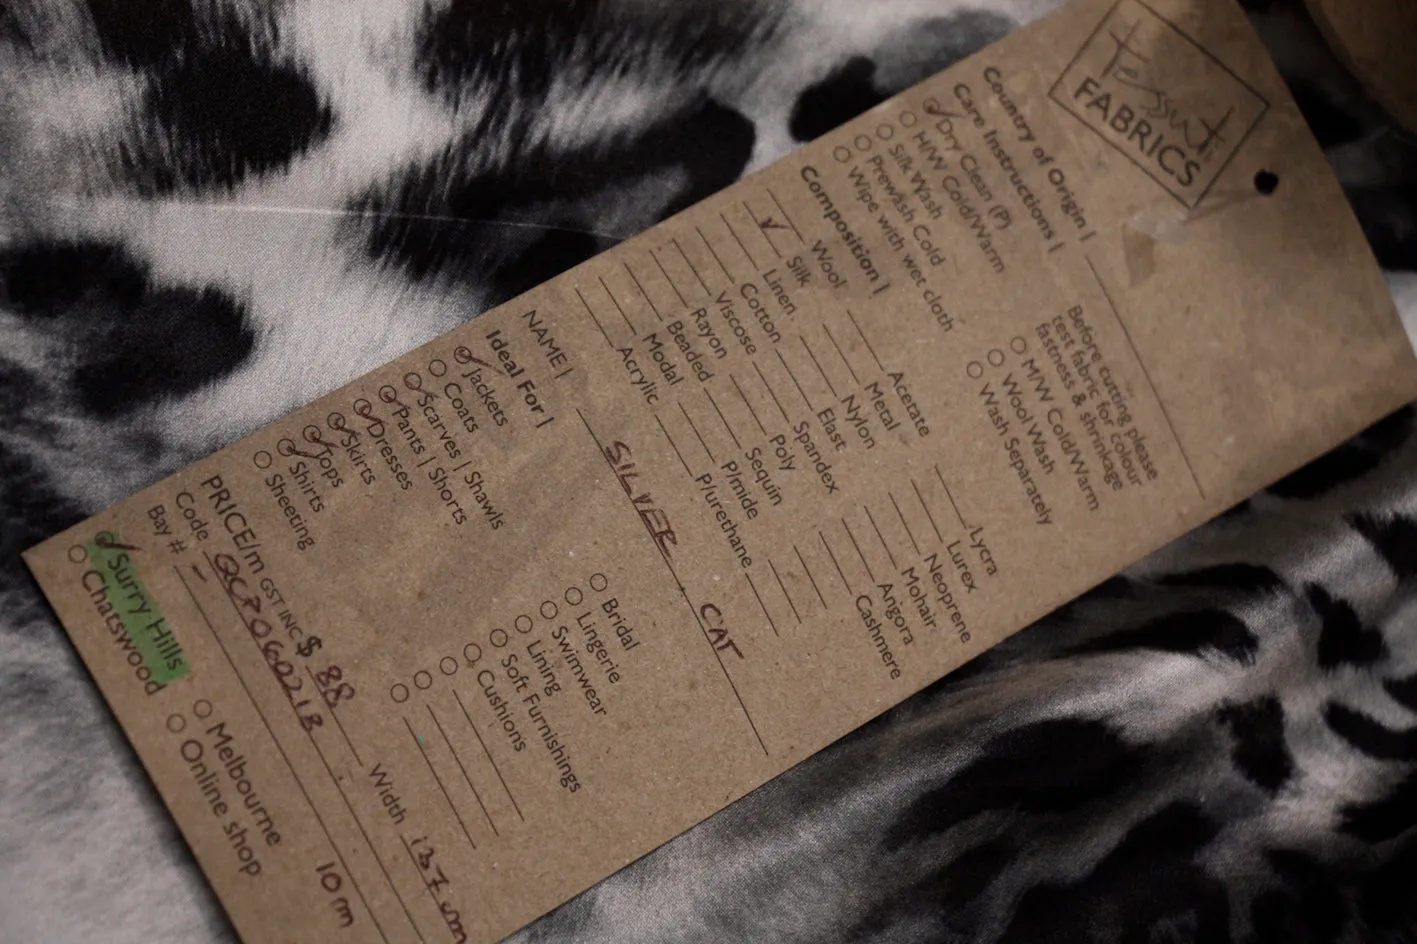 tessuti
FABRICS
Country of Origin |
Care Instructions |
Dry Clean (P)
H/W Cold/Warm
Silk Wash
Prewash Cold
Wipe with wet cloth
Before cutting please
test fabric for colour
fastness & shrinkage
M/W Cold/Warm
Wool Wash
Wash Separately
Composition |
Wool
✓ Silk
Linen
Cotton
Viscose
Rayon
Beaded
Modal
Acrylic
Acetate
Metal
Nylon
Elast
Spandex
Poly
Sequin
P/mide
P/urethane
Lycra
Lurex
Neoprene
Mohair
Angora
Cashmere
NAME | SILVER CAT
Ideal For |
Jackets
Coats
Scarves | Shawls
Pants | Shorts
Dresses
Skirts
Tops
Shirts
Sheeting
Bridal
Lingerie
Swimwear
Lining
Soft Furnishings
Cushions
PRICE/m GST INC $ 88 Width 137cm
Code QCPOG021B
Bay # - 10m
Surry Hills
Chatswood
Melbourne
Online shop